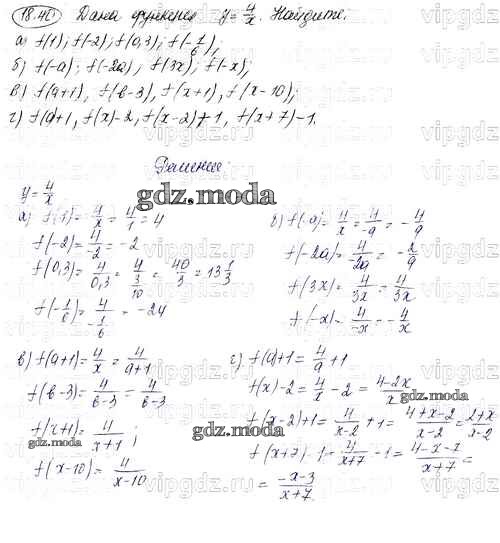 18.40) Дана функция y = 4/x. Найдите:
а) f(1); f(-2); f(0,3); f(-1/6);
б) f(-a); f(-2a); f(3x); f(-x);
в) f(a+1), f(b-3), f(x+1), f(x-10);
г) f(a)+1, f(x)-2, f(x-2)+1, f(x+7)-1.
Решение:
y = 4/x
gdz.moda
а) f(1) = 4/x = 4/1 = 4
f(-2) = 4/-2 = -2
f(0,3) = 4/0,3 = 4/3/10 = 40/3 = 13 1/3
f(-1/6) = 4/-1/6 = -24
б) f(-a) = 4/x = 4/-a = -4/a
f(-2a) = 4/-2a = -2/a
f(3x) = 4/3x = 4/3x
f(-x) = 4/-x = -4/x
в) f(a+1) = 4/x = 4/a+1
f(b-3) = 4/b-3 = 4/b-3
f(x+1) = 4/x+1;
gdz.moda
f(x-10) = 4/x-10
г) f(a)+1 = 4/a + 1
f(x)-2 = 4/x - 2 = 4-2x/x
gdz.moda
f(x-2)+1 = 4/x-2 + 1 = 4+x-2/x-2 = 2+x/x-2
f(x+7)-1 = 4/x+7 - 1 = 4-x-7/x+7 =
= -x-3/x+7
gdz.moda
vipgdz